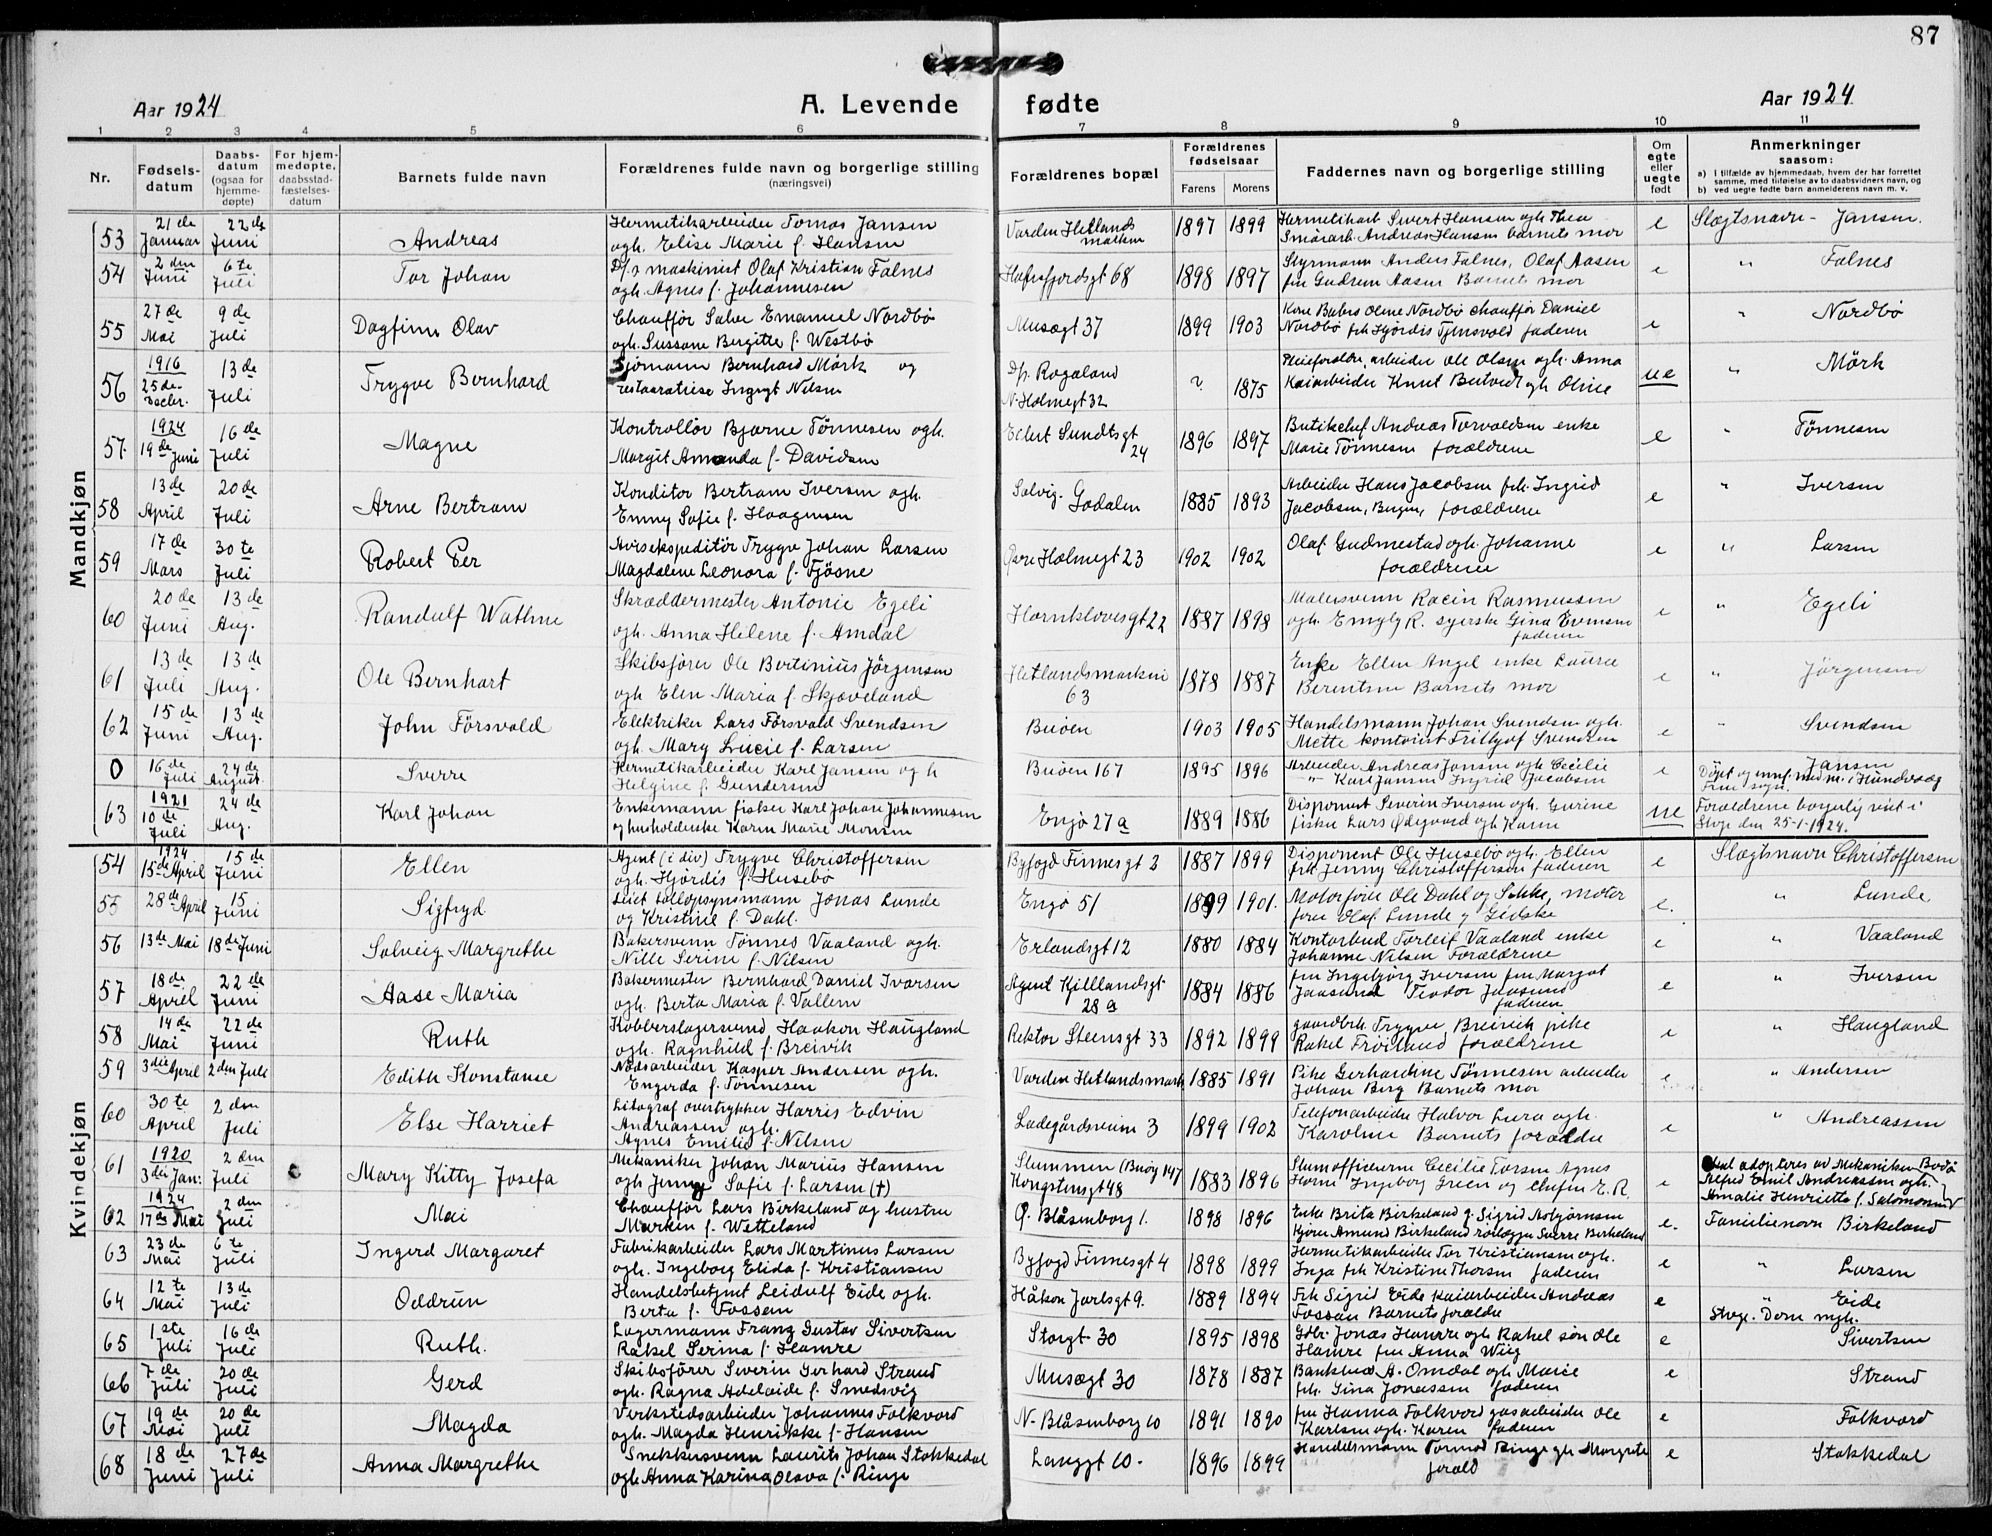 87
Aar 1924 A. Levende fødte Aar 1924
1 2 3 4 5 6 7 8 9 10 11
Nr. Fødsels-datum Daabs-datum (ogsaa for hjemme-døpte) For hjem-medøpte, daabsstad-fæstelses-datum Barnets fulde navn Forældrenes fulde navn og borgerlige stilling (næringsvei) Forældrenes bopæl Forældrenes fødselsaar Farens Morens Faddernes navn og borgerlige stilling Om egte eller uegte født Anmerkninger saasom:
a) I tilfælde av hjemmedaab, hvem der har forrettet samme, med tilføielse av to daabsvidners navn, og
b) ved uegte fødte barn anmelderens navn m. v.
Mandkjøn
53 21de Januar 22de Juni Andreas Hermetikarbeider Tomas Jansen ogh. Elise Marie f. Hansen Varden Hetlandsmarken 1897 1899 Hermetikarb Sivert Hansen ogh Thea Smørarb. Andreas Hansen barnets mor e Slægtsnavn - Jansen.
54 2den Juni 6te Juli Tor Johan D/s maskinist Olaf Kristian Falnes ogh. Agnes f. Johannesen Hafrsfjordsgt 68 1898 1897 Styrmann Anders Falnes, Olaf Aasen fru Gudrun Aasen Barnets mor e " Falnes
55 27de Mai 9de Juli Dagfinn Olav Chauffør Salve Emanuel Nordbø ogh. Sussane Birgitte f. Westbø Musægt 37 1899 1903 Olene Nordbø chauffør Daniel Nordbø frk Hjørdis Tjensvold faderen e " Nordbø
56 1916 25de Decbr. 13de Juli Trygve Bernhard Sjømann Bernhard Mørk og restauratrise Ingeb Nilsen D/s Rogaland N. Holmegt 32 ? 1875 arbeider Ole Olsen ogh. Anna Kaiarbeider Knut ogh Oline ue " Mørk
57 1924 19de Juni 16de Juli Magne Kontrollør Bjarne Tønnesen ogh. Margit Amanda f. Davidsen Eilert Sundtsgt 24 1896 1897 Butikchef Andreas Torvaldsen enke Marie Tønnesen forældrene e " Tønnesen
58 13de April 20de Juli Arne Bertram Konditor Bertram Iversen ogh. Emmy Sofie f. Haagensen Solvig. Godalen 1885 1893 Arbeider Hans Jacobsen frk. Ingrid Jacobsen, Bergen, forældrene e " Iversen
59 17de Mars 30te Juli Robert Per Avisekspeditør Trygve Johan Larsen Magdalene Leonora f. Tjøsne Øvre Holmegt 23 1902 1902 Olaf Gudmestad ogh. Johanne forældrene e " Larsen
60 20de Juni 13de Aug. Randulf Wathne Skræddermester Antonie Egeli ogh. Anna Helene f. Amdal Harnkløvesgt 22 1887 1898 Malersvenn Racin Rasmussen ogh. Emyly R. syerske Gina Evensen faderen e " Egeli
61 13de Juli 13de Aug. Ole Bernhart Skibsfører Ole Bertinius Jørgensen ogh Elen Maria f. Skjæveland Hetlandsmarken 63 1878 1887 Enke Ellen Angel enke Laura Berentsen Barnets mor e " Jørgensen
62 15de Juni 13de Aug. John Førsvold Elektriker Lars Førsvold Svendsen ogh. Mary Lucie f. Larsen Buøen 1903 1905 Handelsmann Johan Svendsen ogh. Mette kontorist Frithjof Svendsen e " Svendsen
0 16de Juli 24de August Sverre Hermetikarbeider Karl Jansen og h Helgine f. Gundersen Buøen 167 1895 1896 Arbeider Andreas Jansen ogh Cecilie " Karl Jansen Ingrid Jacobsen e Jansen Døpt og innf. med nr. i Hundvaag
63 1921 10de Juli 24de Aug. Karl Johan Enkemann fisker Karl Johan Johannesen og husholderske Karen Marie Monsen Engø 27a 1889 1886 Disponent Severin Iversen ogh. Gurine fisker Lars Ødegaard ogh Karen ue Forældrene borgerlig viet i Stvgr. den 25-1-1924.
Kvindekjøn
54 1924 15de April 15de Juni Ellen Agent (i div) Trygve Christoffersen ogh. Hjørdis f. Husebø Byfogd Finnesgt 2 1887 1899 Disponent Ole Husebø ogh. Ellen frk Jenny Christoffersen faderen e Slægtsnavn Christoffersen
55 28de April 15 Juni Sigfryd Jonas Lunde og Kristine f. Dahl. Engø 51 1899 1901. Motorfører Ole Dahl og Sikke, motorfører Olaf Lunde og Gidske e. " Lunde
56 13de Mai 18de Juni Solveig Margrethe Bakersvenn Tønnes Vaaland ogh. Nille Serine f. Nilsen Erlandsgt 12 1880 1884 Kontorbud Torleif Vaaland enke Johanne Nilsen Forældrene e " Vaaland
57 18de April 22de Juni Aase Maria Bakermester Bernhard Daniel Ivarsen ogh. Berta Maria f. Vallem Agent Kjellandsgt 28a 1884 1886 fru Ingebjørg Iversen fru Margot Jaasund Teodor Jaasund faderen e " Iversen
58 14de Mai 22de Juni Ruth Kobberslagersvend Haakon Haugland ogh. Ragnhild f. Breivik Rektor Steensgt 33 1892 1899 gaardbr. Trygve Breivik pike Rakel Frøiland forældrene e " Haugland
59 3die April 2den Juli Edith Konstanse Nødsarbeider Kasper Andersen ogh. Engerda f. Tønnesen Varden Hetlandsmark 1885 1891 Pike Gerhardine Tønnesen arbeider Johan Berg Barnets mor e " Andersen
60 30te April 2den Juli Else Harriet Litograf overtrykker Harris Edvin Andreassen ogh. Agnes Emilie f. Nilsen Ladegårdsveien 3 1899 1902 Telefonarbeider Halvor Lura ogh. Karoline Barnets forældre e " Andreassen
61 1920 3die Jan: 2den Juli Mary Kitty Josefa Mekaniker Johan Marius Hansen ogh Jenny Sofie f. Larsen (+) Slummen (Buøy 147) Kongstensgt 48 1883 1896 Slumofficererne Cecilie Torsen Agnes Horne Ingeborg Green og Chefen E. R. e Skal adopteres av Mekaniker Bodø Alfred Emil Andreassen ogh. Amalie Henriette f. Salomonsen
62 1924 17de Mai 2den Juli Mai Chauffør Lars Birkeland og hustru Marken f. Wetteland Ø. Blåsenborg 1. 1898 1896 Enke Brita Birkeland g. Sigrid Asbjørnsen Amund Birkeland rørlægger Sverre Birkeland e. Familienavn Birkeland
63 23de Mai 6te Juli Ingerd Margaret Fabrikarbeider Lars Martinus Larsen ogh. Ingeborg Elida f. Kristiansen Byfogd Finnesgt 4 1898 1899 Hermetikarbeider Tor Kristiansen ogh. Inga frk Kristine Thorsen faderen e " Larsen
64 12te Mai 13de Juli Oddrun Handelsbetjent Leidulf Eide ogh. Berta f. Fossan Håkon Jarlsgt 9. 1889 1894 Frk Sigrid Eide kaiarbeider Andreas Fossan Barnets forældre e " Eide Stvgr. Dom mgh.
65 1ste Juli 16de Juli Ruth. Lagermann Frang Gustav Sivertsen Rakel Serina f. Hamre Storgt 30 1895 1898 Gdbr. Jonas Hamre ogh Rakel søn Ole Hamre fru Anna Wiig e Sivertsen
66 7de Juli 20de Juli Gerd Skibsfører Severin Gerhard Strand ogh. Ragna Adelaide f. Smedsvig Musægt 30 1878 1887 A. Omdal ogh Marie frk. Gina Jonassen faderen e Strand
67 19de Mai 20de Juli Magda Verkstedsarbeider Johannes Folkvord ogh. Magda Henrikke f. Hansen N. Blåsenborg 10 1891 1890 fru Hanna Folkvord gasarbeider Ole Karlsen ogh. Karen faderen e Folkvord
68 18de Juni 27de Juli Anna Margrethe Snekkersvenn Laurits Johan Stokkedal ogh. Anna Karina Olava f. Ringe Langgt 10. 1896 1899 Handelsmann Tormod Ringe gh Margrete foræld e Stokkedal